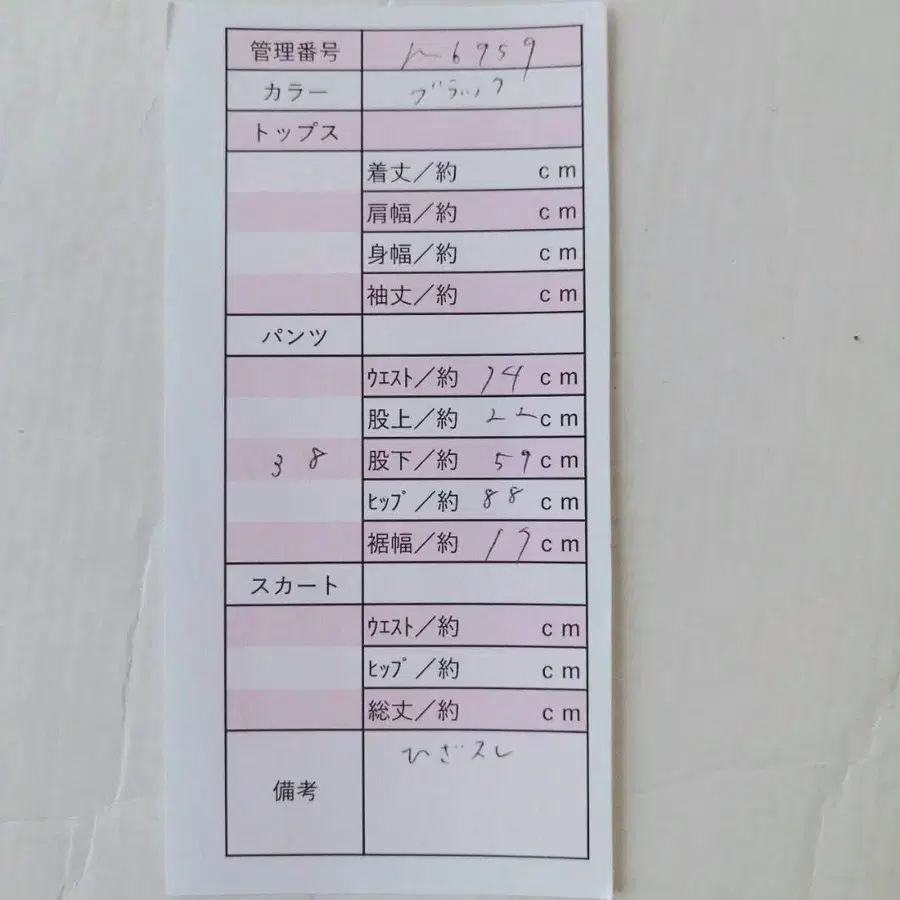 管理番号 m6959
カラー ブラック
トップス
着丈／約 cm
肩幅／約 cm
身幅／約 cm
袖丈／約 cm
パンツ
ｳｴｽﾄ／約 74 cm
股上／約 22 cm
38 股下／約 59 cm
ﾋｯﾌﾟ／約 88 cm
裾幅／約 cm
スカート
ｳｴｽﾄ／約 cm
ﾋｯﾌﾟ／約 cm
総丈／約 cm
備考 ひざスレ